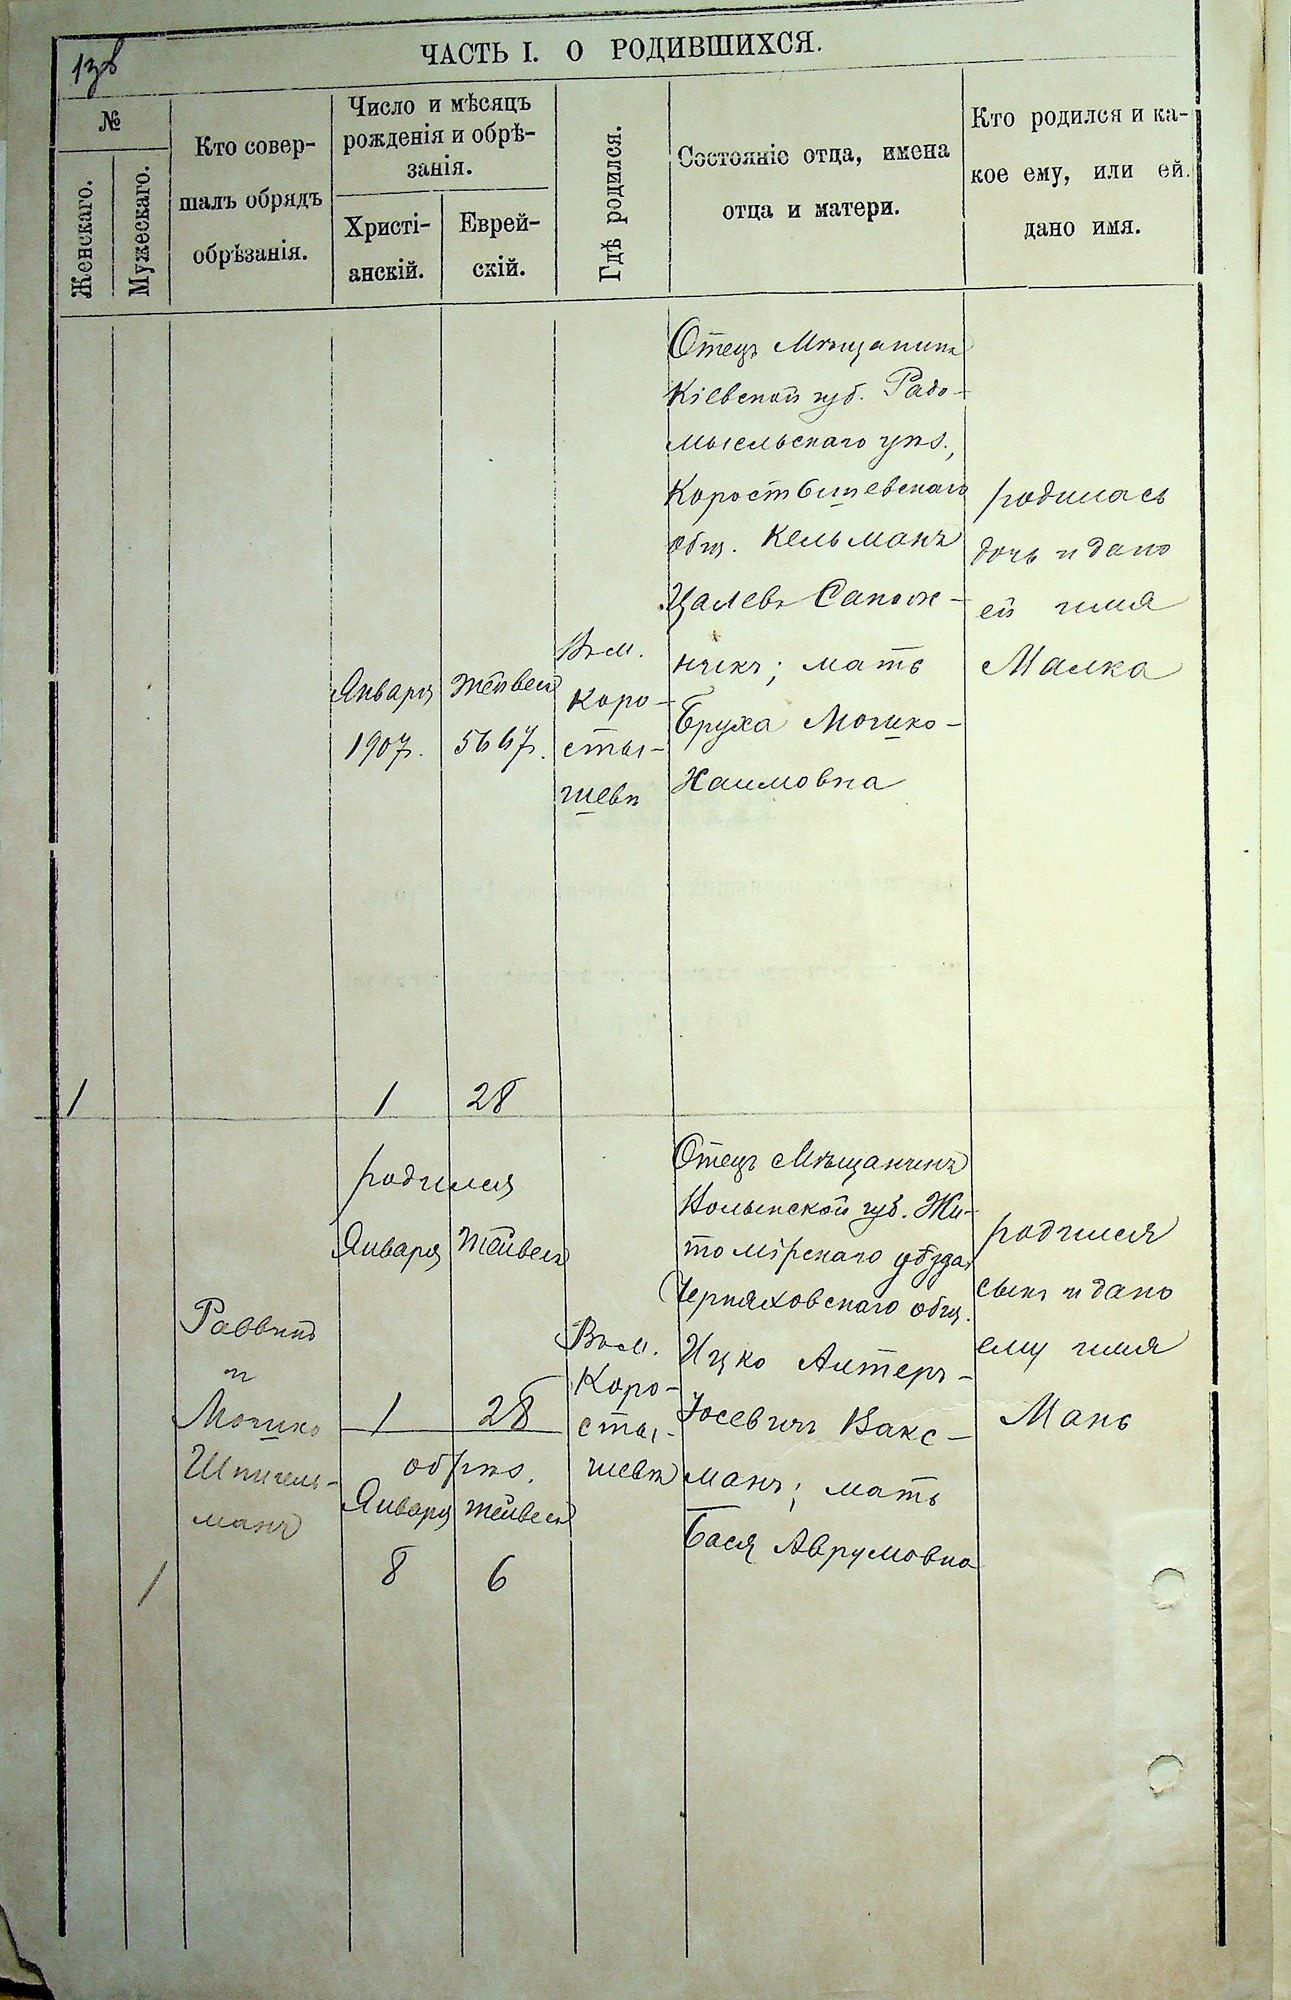 ЧАСТЬ I. О РОДИВШИХСЯ.
№
Женскаго.
Мужескаго.
Кто совер-
шалъ обрядъ
обрѣзанія.
Число и мѣсяцъ
рожденія и обрѣ-
занія.
Христі-
анскій.
Еврей-
скій.
Гдѣ родился.
Состояніе отца, имена
отца и матери.
Кто родился и ка-
кое ему, или ей.
дано имя.
1
Января
1907.
1
Тейвеса
5667.
28
Въ м.
Коро-
сты-
шевѣ
Отецъ Мѣщанинъ
Кіевской губ. Радо-
мысльскаго уѣз.,
Коростышевскаго
общ. Кельманъ
Цалевъ Сапож-
никъ; мать
Бруха Мошко-
Хаимовна
родилась
дочь и дано
ей имя
Малка
1
Раввинъ
и
Мошко
Шпигель-
манъ
родился
Января Тейвеса
1 28
обрѣз.
Января Тейвеса
8 6
Въ м.
Коро-
сты-
шевѣ
Отецъ Мѣщанинъ
Волынской губ. Жи-
томірскаго уѣзда,
Черняховскаго общ.
Ицко Алтеръ-
Іосевичъ Вакс-
манъ; мать
Бася Аврумовна
родился
сынъ и дано
ему имя
Мань